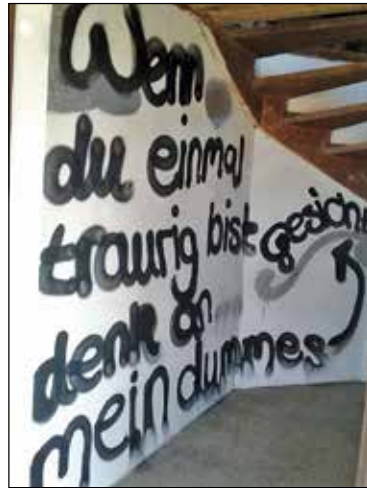 Wenn
du einmal
traurig bist
denk an
mein dummes
Gesicht